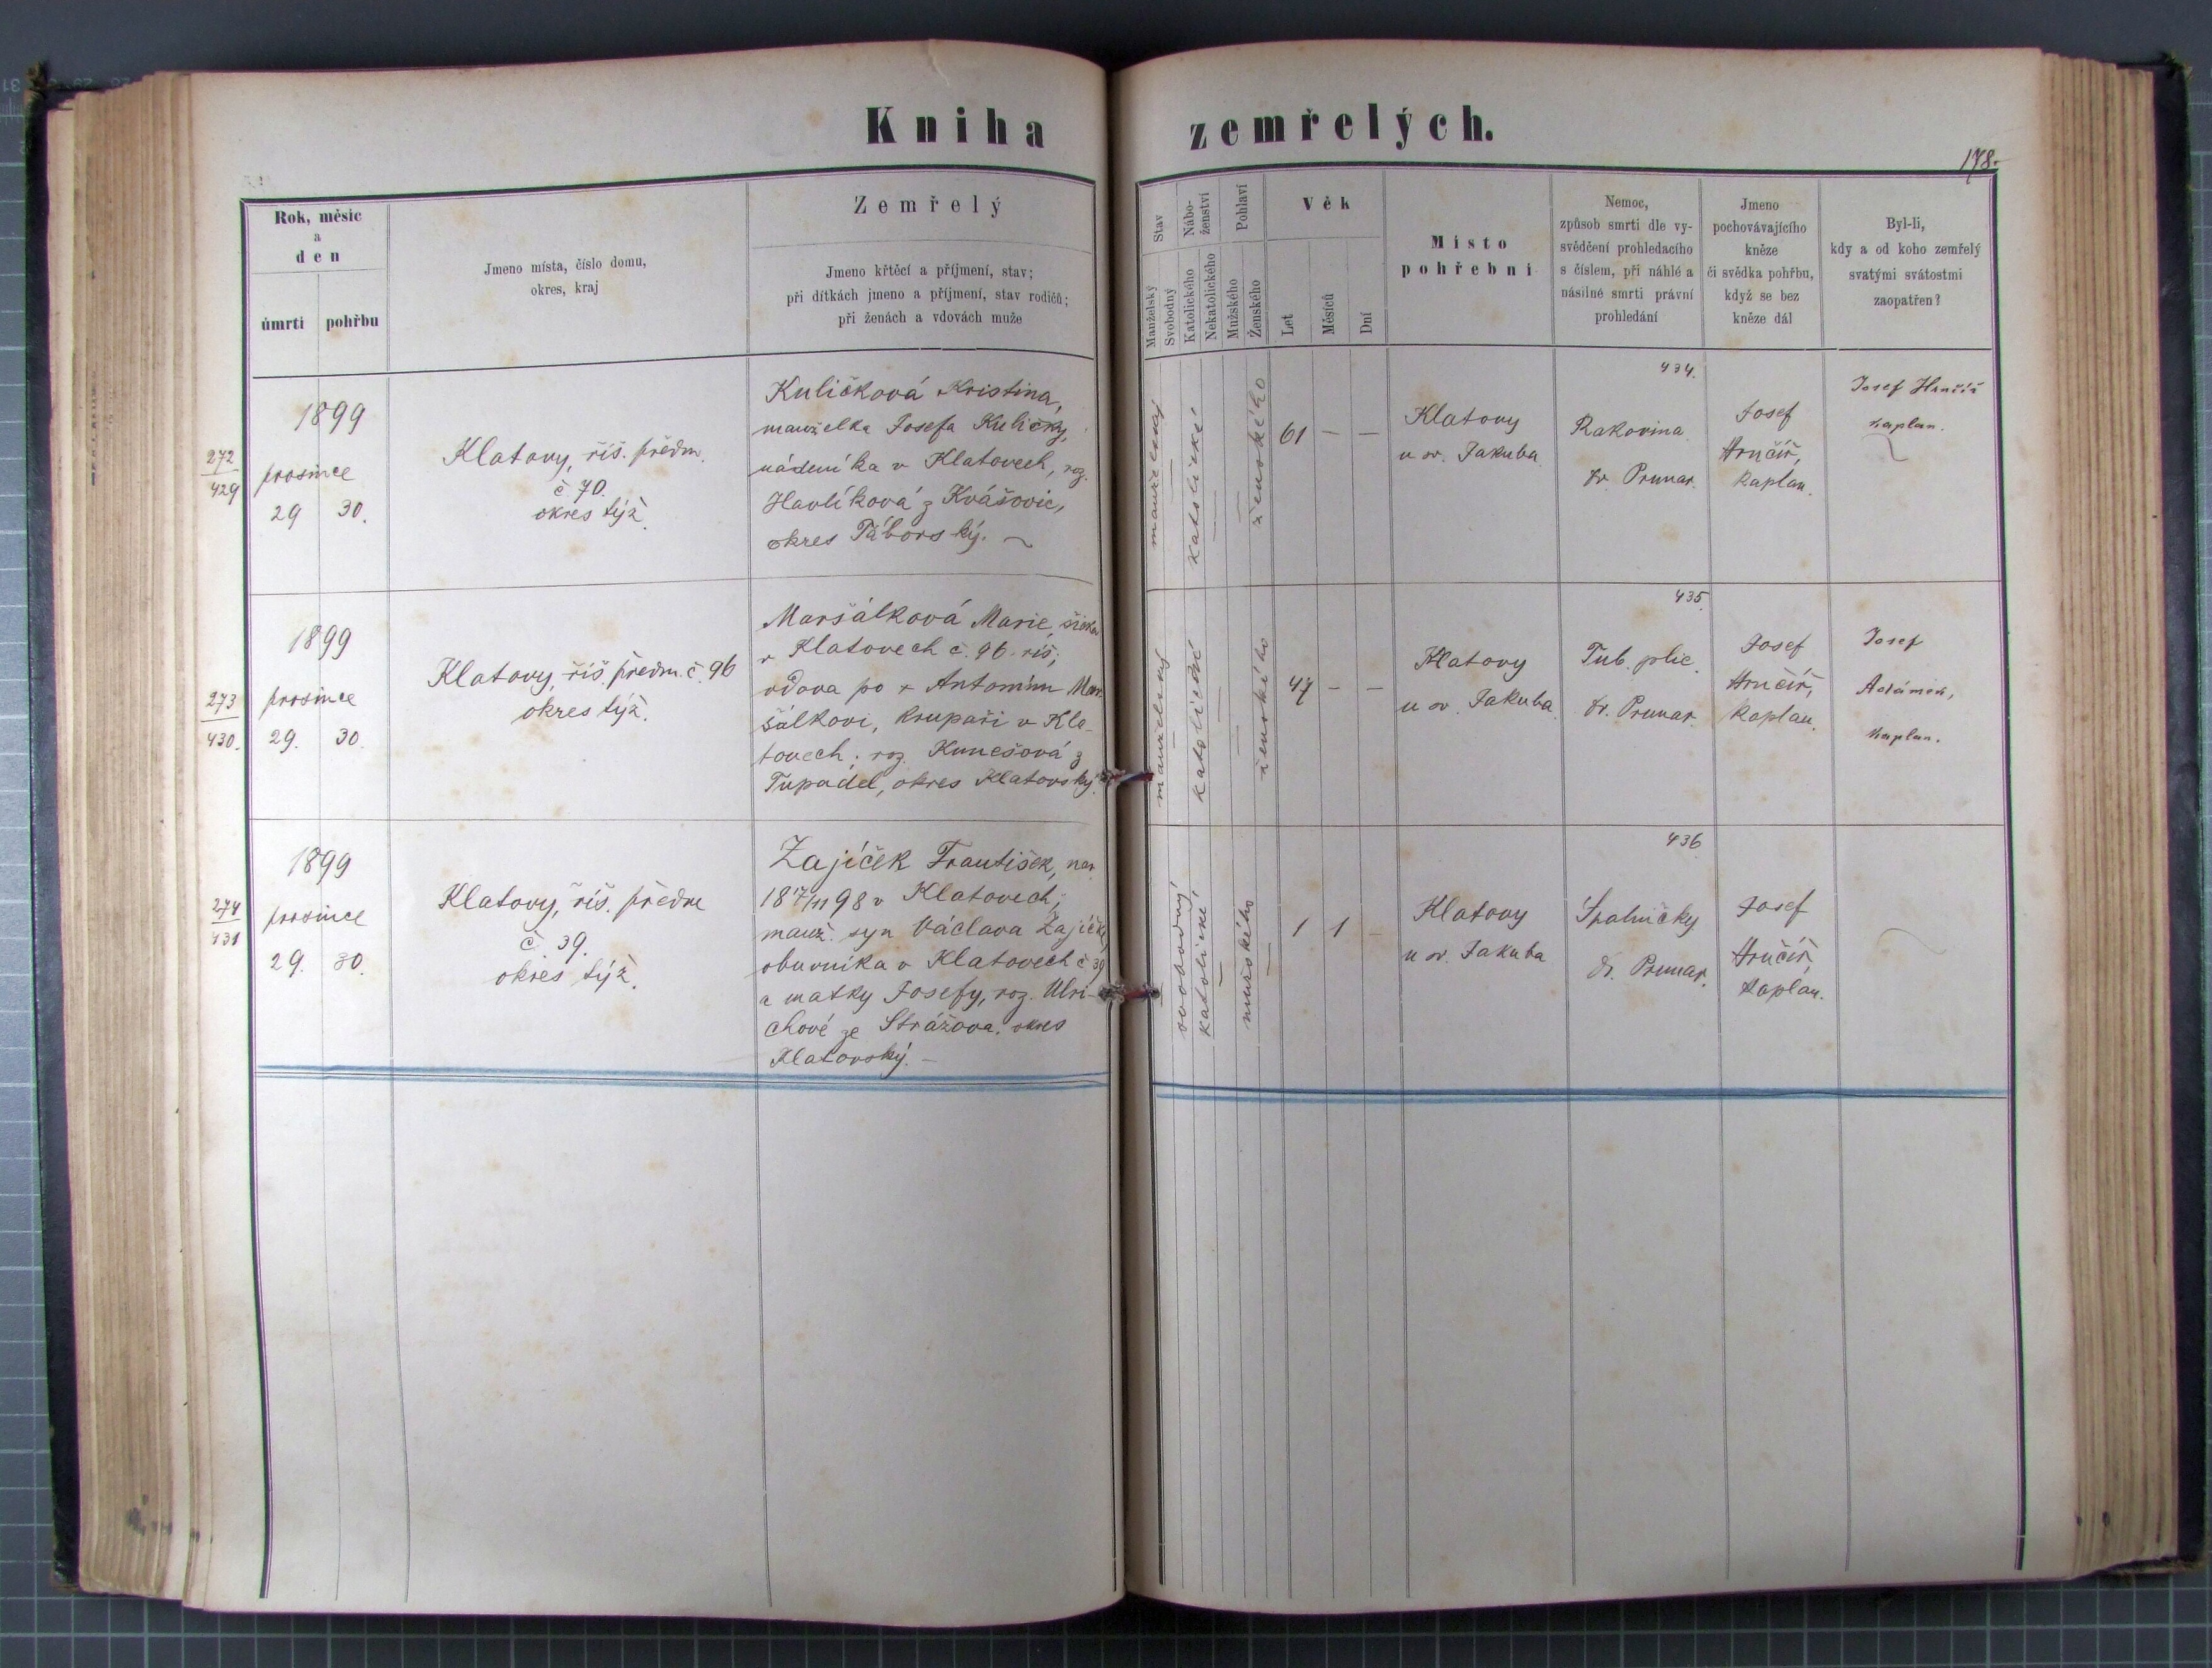 Kniha zemřelých.
178.
Rok, měsíc
a
den
úmrtí
pohřbu
Jmeno místa, číslo domu,
okres, kraj
Zemřelý
Jmeno křtěcí a příjmení, stav;
při dítkách jmeno a příjmení, stav rodičů;
při ženách a vdovách muže
Stav
Manželský
Svobodný
Nábo-
ženství
Katolického
Nekatolického
Pohlaví
Mužského
Ženského
Věk
Let
Měsíců
Dní
Místo
pohřební
Nemoc,
způsob smrti dle vy-
svědčení prohledacího
s číslem, při náhlé a
násilné smrti právní
prohledání
Jmeno
pochovávajícího
kněze
či svědka pohřbu,
když se bez
kněze dál
Byl-li,
kdy a od koho zemřelý
svatými svátostmi
zaopatřen?
272
429
1899
prosince
29 30.
Klatovy, říš. předm.
č. 70.
okres týž.
Kuličková Kristina,
manželka Josefa Kuličky,
nádeníka v Klatovech, roz.
Havlíková z Kvášovic,
okres Táborský.
manželský
katolické
ženského
61 — —
Klatovy
u sv. Jakuba
434.
Rakovina
dr. Prunar.
Josef
Hrnčíř,
kaplan.
Josef Hrnčíř
kaplan.
273
430.
1899
prosince
29. 30.
Klatovy, říš. předm. č. 96
okres týž.
Maršálková Marie,
v Klatovech č. 96 říš.;
vdova po + Antonínu Mar
šálkovi, krupaři v Kla-
tovech; roz. Kunešová z
Tupadel, okres Klatovský.
manželský
katolické
ženského
47 — —
Klatovy
u sv. Jakuba
435.
Tub. plic.
dr. Prunar.
Josef
Hrnčíř,
kaplan.
Josef
Adámek,
kaplan.
274
431
1899
prosince
29. 30.
Klatovy, říš. předm
č. 39.
okres týž.
Zajíček František, nar.
18 17/11 98 v Klatovech;
manž. syn Václava Zajíčka,
obuvníka v Klatovech č 39
a matky Josefy, roz. Ulri-
chové ze Strážova. okres
Klatovský. —
svobodný
katolické,
mužského
1 1 —
Klatovy
u sv. Jakuba
436
Spalničky
dr. Prunar.
Josef
Hrnčíř,
kaplan.